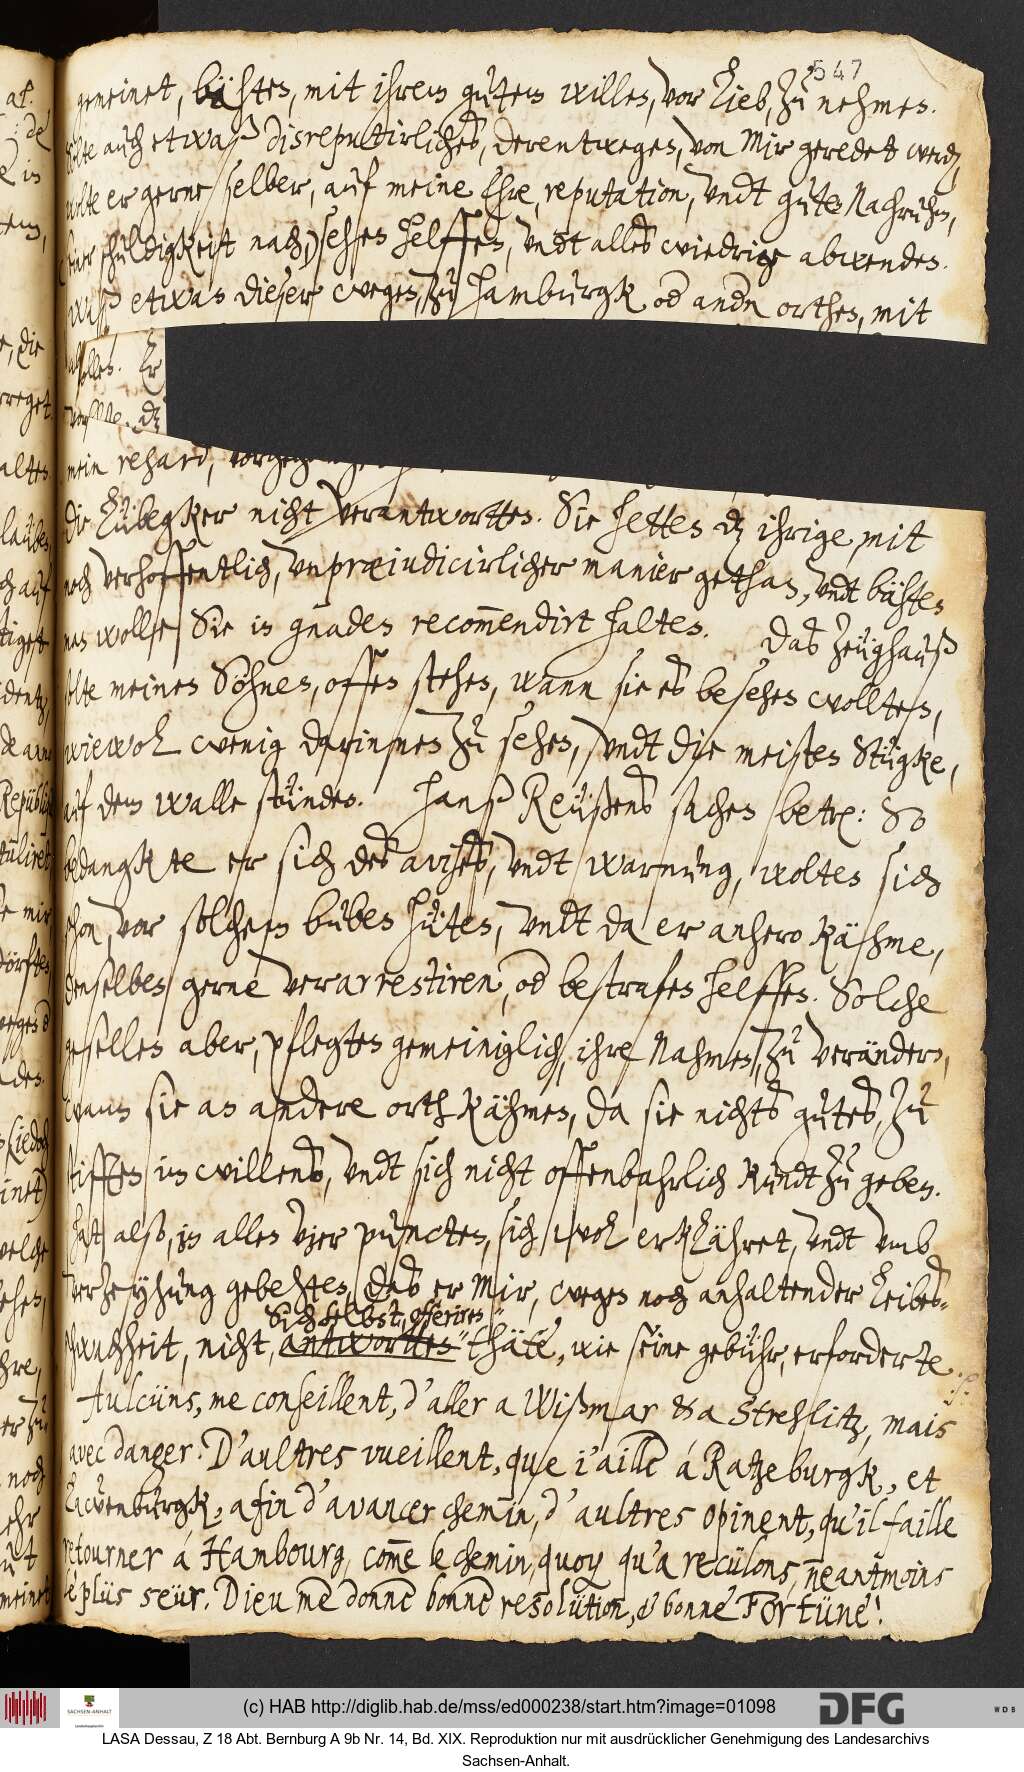 547
gemeinet, bähten, mit ihrem gutem willen, vor lieb, zu nehmen.
auch etwaß disreputirliches, derentwegen, von Mir geredet werden,
wolte er gerne selber, auf meine Ehre, reputation, undt guten Nachruhm,
seiner schuldigkeit nach, sehen helffen, undt alles wiedrige abwenden.
waß etwas dieser wegen, zu Hamburgk od andn orthen, mit
wollen. Er
dz
mein rehard,
die Lübegker nicht verantwortten. Sie hetten dz ihrige, mit
noch verhoffentlich, unpræiudicirlicher manier gethan, undt bähten
man wollte Sie in gnaden recom̄endirt halten. Das Zeüghauß
solte meinen Söhnen, offen stehen, wann sie es besehen wollten,
wiewol wenig darinnen zu sehen, undt die meisten Stügke,
auf dem walle stünden. Hanß Reüßens sachen betr: So
bedangkte er sich des avises, undt warnung, wolten sich
schon, vor solchem buben hüten, undt da er anhero kähme,
denselben gerne verarrestiren, od bestrafen helffen. Solche
gesellen aber, pflegten gemeiniglich, ihre Nahmen, zu verändern,
wann sie an andere orth kähmen, da sie nichts gutes, zu
stifften im willens, undt sich nicht offenbahrlich kundt zu geben.
Hat also, in allen vier puncten, sich wol erklähret, undt umb
verzeyhung gebehten, das er Mir, wegen noch anhaltender Leibes-
Sich selbst, offeriren
schwachheit, nicht, antwortten thäte, wie seine gebühr, erforderte
Aulcüns, me conseillent, d'aller a Wißmar & a Strehlitz, mais
avec danger. D'aultres vueillent, que i'aille á Ratzeburgk, et
Lawenburgk, afin d'avancer chemin, d'aultres opinent, qu'il faille
retourner á Hambourg, com̄e le chemin, quoy qu'a recülons, neantmoins
le plüs seür. Dieu me donne bonne resolütion, & bonne Fortüne!
(c) HAB http://diglib.hab.de/mss/ed000238/start.htm?image=01098
SACHSEN-ANHALT
DFG
WDB
LASA Dessau, Z 18 Abt. Bernburg A 9b Nr. 14, Bd. XIX. Reproduktion nur mit ausdrücklicher Genehmigung des Landesarchivs
Sachsen-Anhalt.